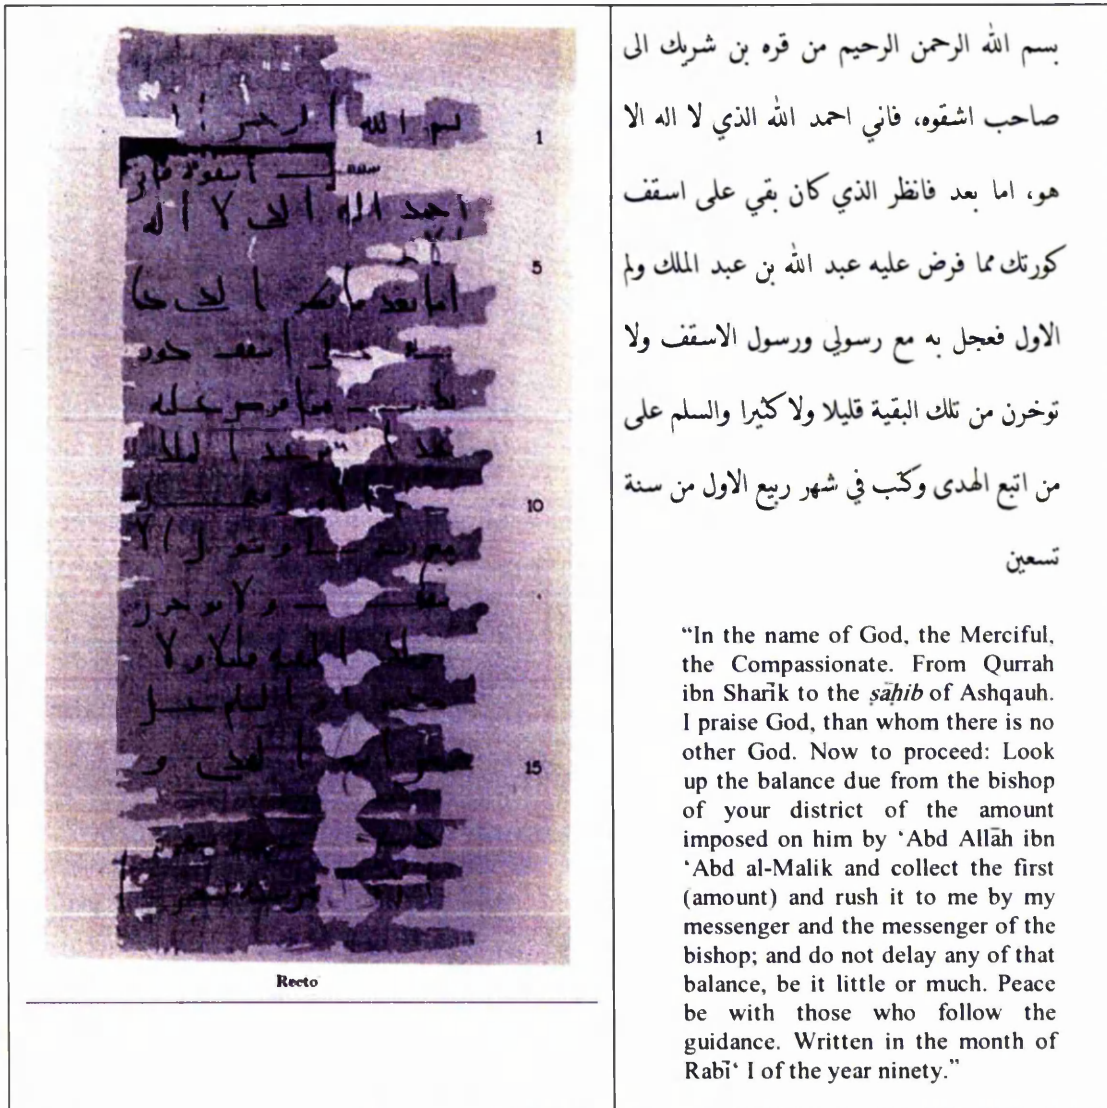 بسم الله الرحمن
1
اشقوه فاني
احمد الله الذي لا اله
5
اما بعد فانظر الذي كا
اسقف كور
مما فرض عليه
10
مع
ولا توخرن
البقية قليلا ولا
15
Recto
بسم الله الرحمن الرحيم من قره بن شريك الى
صاحب اشقوه، فاني احمد الله الذي لا اله الا
هو، اما بعد فانظر الذي كان بقي على اسقف
كورتك مما فرض عليه عبد الله بن عبد الملك ولم
الاول فعجل به مع رسولي ورسول الاسقف ولا
توخرن من تلك البقية قليلا ولا كثيرا والسلم على
من اتبع الهدى وكتب في شهر ربيع الاول من سنة
تسعين
“In the name of God, the Merciful,
the Compassionate. From Qurrah
ibn Sharīk to the ṣāḥib of Ashqauh.
I praise God, than whom there is no
other God. Now to proceed: Look
up the balance due from the bishop
of your district of the amount
imposed on him by ‘Abd Allāh ibn
‘Abd al-Malik and collect the first
(amount) and rush it to me by my
messenger and the messenger of the
bishop; and do not delay any of that
balance, be it little or much. Peace
be with those who follow the
guidance. Written in the month of
Rabī‘ I of the year ninety.”